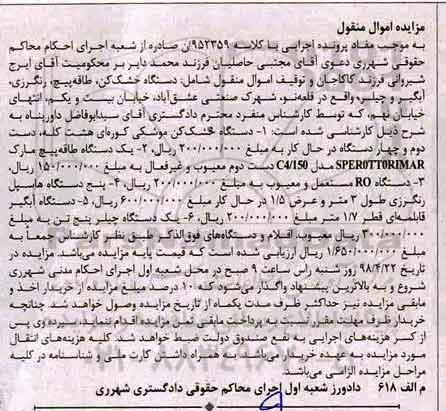 مزایده اموال منقول
به موجب مفاد پرونده اجرایی با کلاسه ۹۵۲۳۵۹ن صادره از شعبه اجرای احکام محاکم
حقوقی شهرری دعوی آقای مجتبی حاصلیان فرزند محمد دایر بر محکومیت آقای ایرج
شیروانی فرزند کاکاجان و توقیف اموال منقول شامل: دستگاه خشک‌کن، طاقه‌پیچ، رنگرزی،
آبگیر و چیلر، واقع در قلعه‌نو، شهرک صنعتی عشق‌آباد، خیابان بیست و یکم، انتهای
خیابان نهم، که توسط کارشناس منفرد محترم دادگستری آقای سیدابوالفضل داورپناه به
شرح ذیل کارشناسی شده است: ۱- دستگاه خشک‌کن موشکی کوره‌ای هشت کله، دست
دوم و چهار دستگاه در حال کار به مبلغ ۲۰۰/۰۰۰/۰۰۰ ریال، ۲- یک دستگاه طاقه‌پیچ مارک
SPER0TT0RIMAR مدل C4/150 دست دوم معیوب و غیرفعال به مبلغ ۱۵۰/۰۰۰/۰۰۰ ریال،
۳- دستگاه RO مستعمل و معیوب به مبلغ ۲۰۰/۰۰۰/۰۰۰ ریال، ۴- پنج دستگاه هاسپل
رنگرزی طول ۳ متر و عرض ۱/۵ در حال کار مبلغ ۶۰۰/۰۰۰/۰۰۰ ریال، ۵- دستگاه آبگیر
قابلمه‌ای قطر ۱/۷ متر مبلغ ۲۰۰/۰۰۰/۰۰۰ ریال، ۶- یک دستگاه چیلر پنج تن به مبلغ
۳۰۰/۰۰۰/۰۰۰ ریال معیوب، اقلام و دستگاه‌های فوق‌الذکر طبق نظر کارشناس جمعاً به
مبلغ ۱/۶۵۰/۰۰۰/۰۰۰ ریال ارزیابی شده است که قیمت پایه مزایده می‌باشد. مزایده در
تاریخ ۹۸/۴/۲۲ روز شنبه راس ساعت ۹ صبح در محل شعبه اول اجرای احکام مدنی شهرری
شروع و به بالاترین پیشنهاد واگذار می‌شود که ۱۰ درصد مبلغ مزایده از خریدار اخذ و
مابقی مزایده نیز حداکثر ظرف مدت یکماه از تاریخ مزایده وصول خواهد شد. چنانچه
خریدار ظرف مهلت مقرر نسبت به پرداخت مابقی ثمن مزایده اقدام ننماید، سپرده وی پس
از کسر هزینه‌های اجرایی به نفع صندوق دولت ضبط خواهد شد. کلیه هزینه‌های انتقال
مورد مزایده به عهده خریدار می‌باشد. به همراه داشتن کارت ملی و شناسنامه در کلیه
مراحل مزایده الزامی می‌باشد.
م الف ۶۱۸ دادورز شعبه اول اجرای محاکم حقوقی دادگستری شهرری